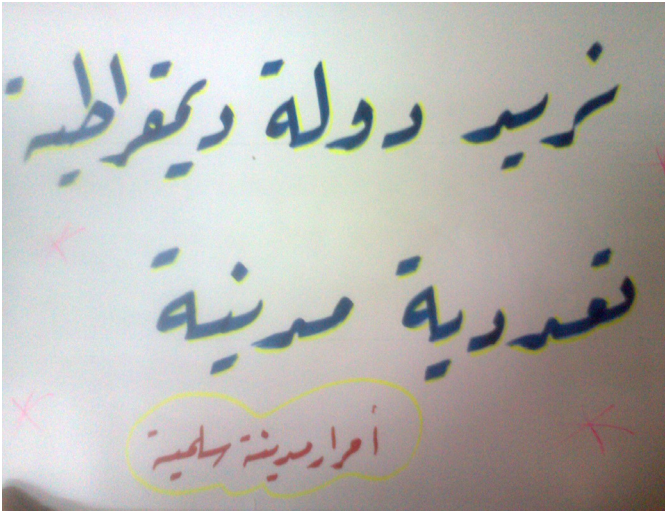 نريد دولة ديمقراطية
تعددية مدنية
أحرار مدينة سلمية